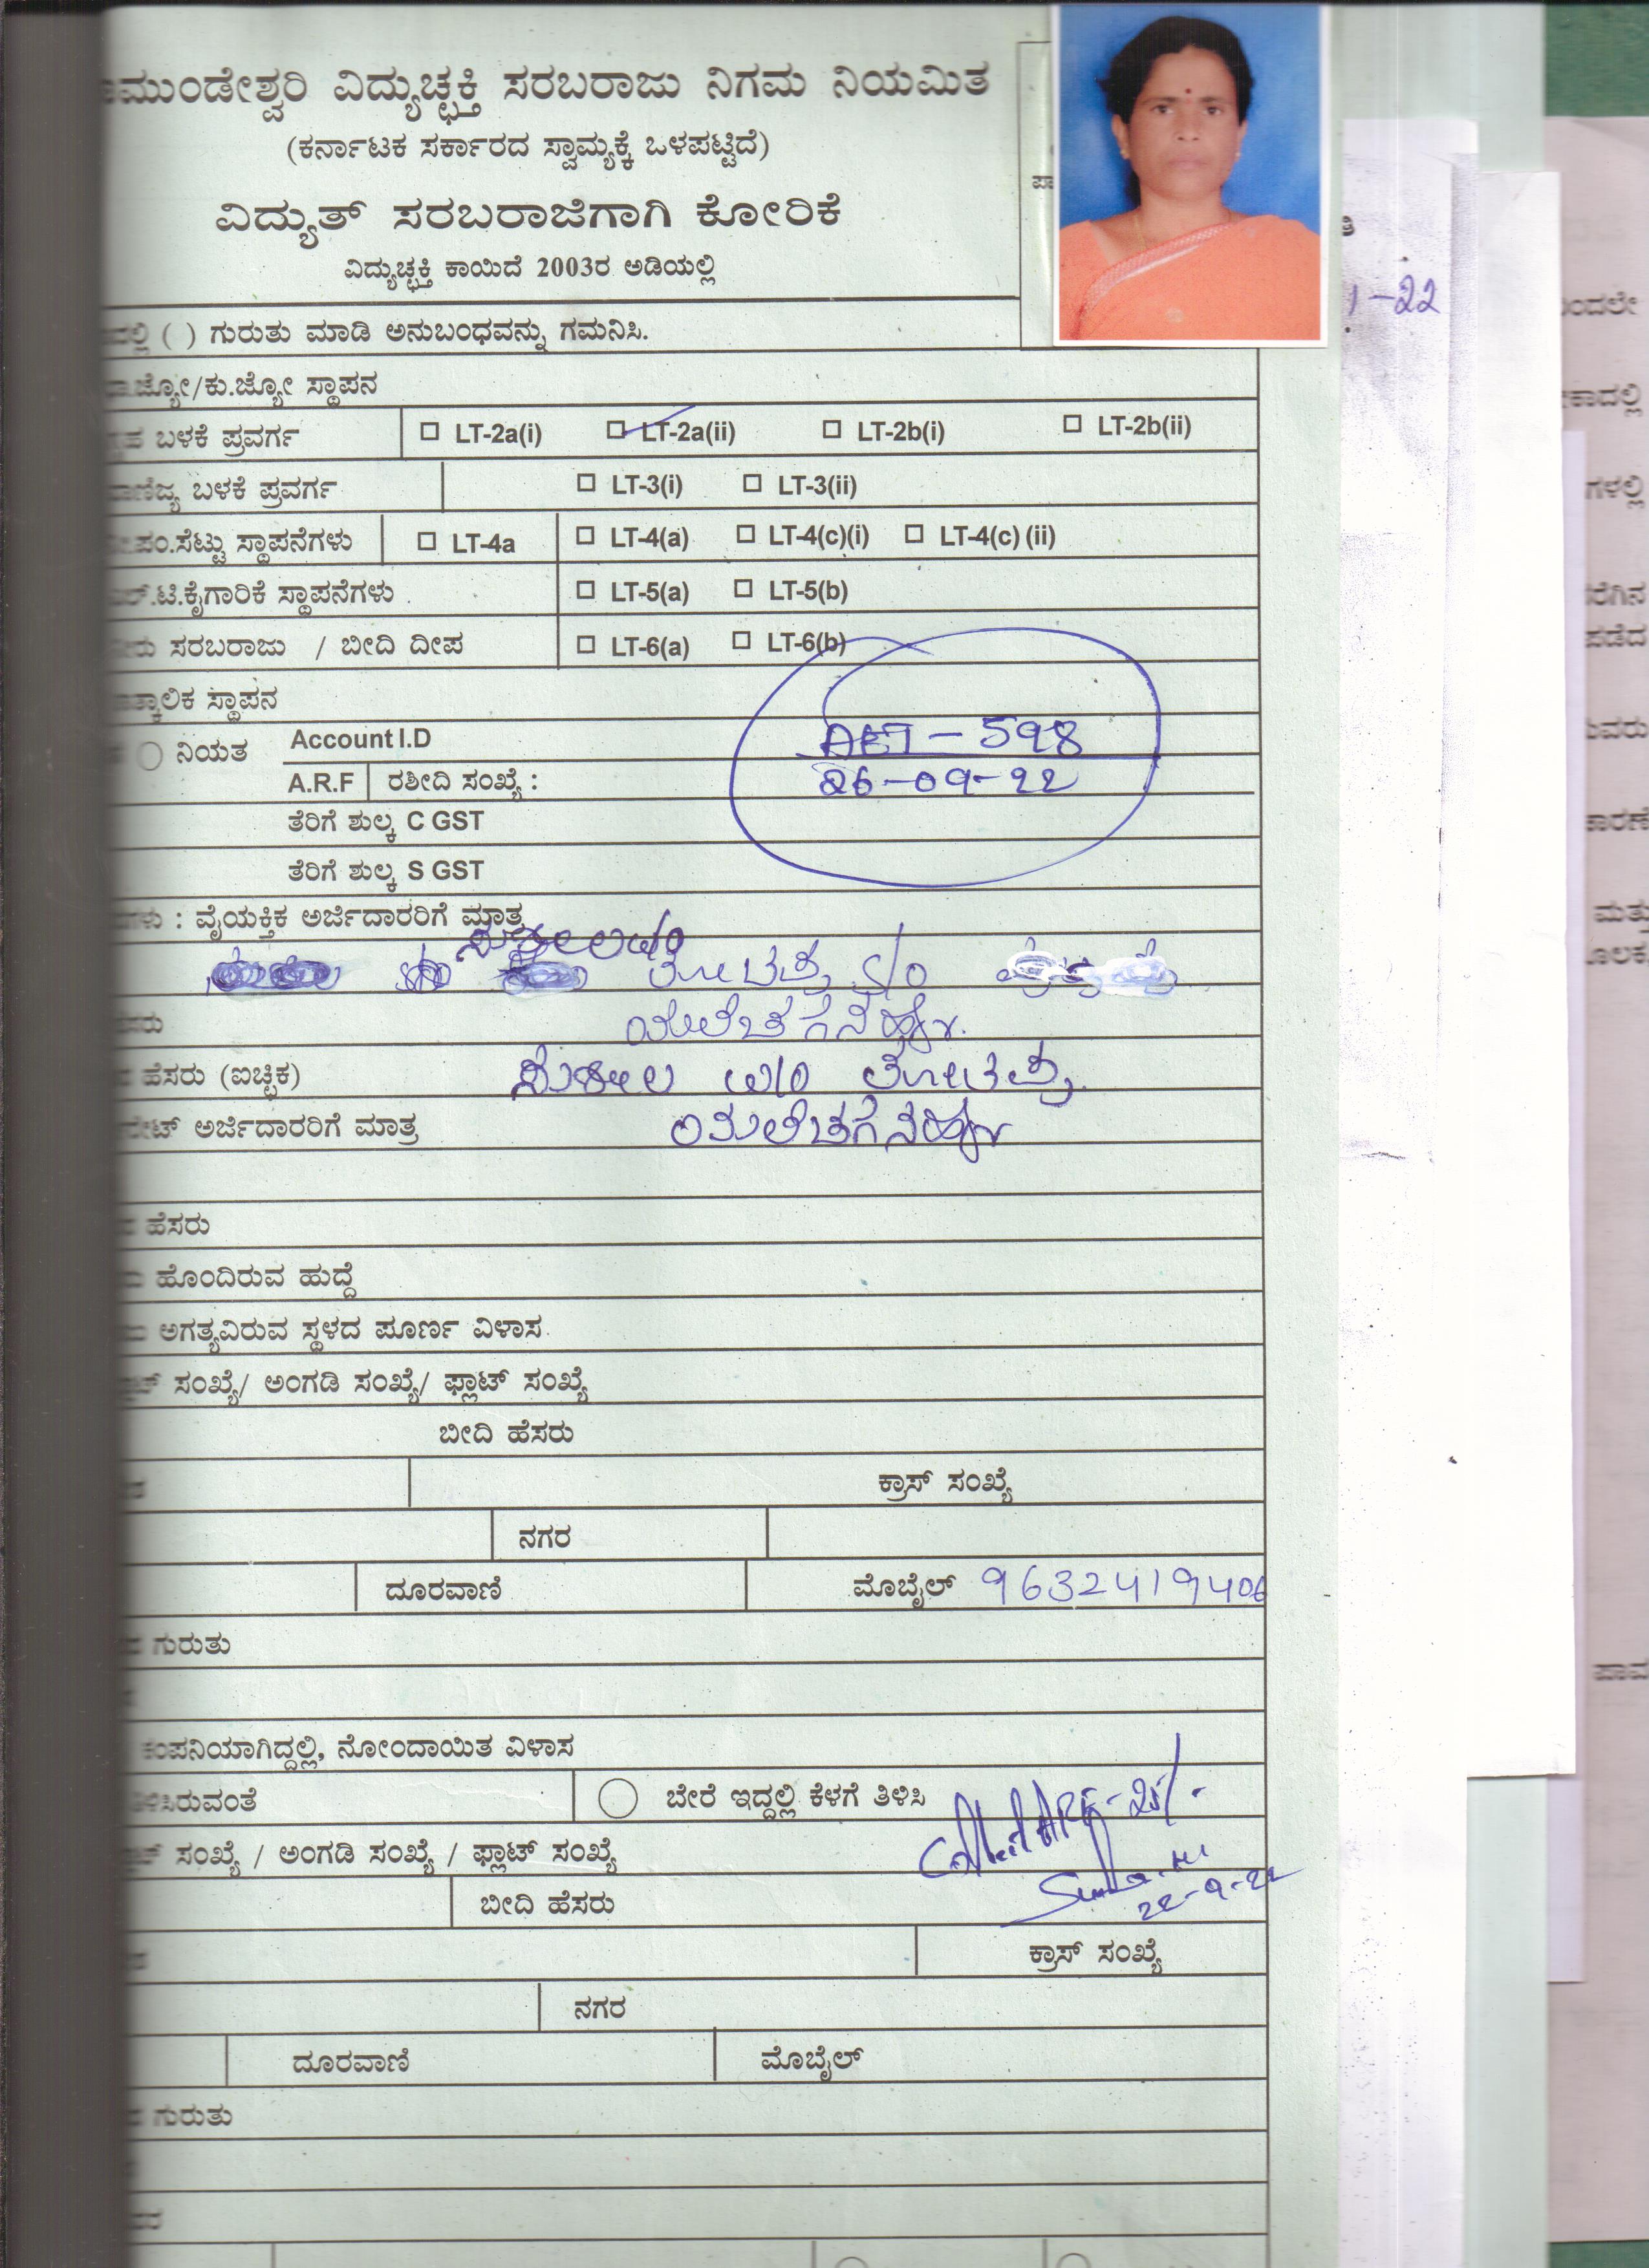 ಮುಂಡೇಶ್ವರಿ ವಿದ್ಯುಚ್ಛಕ್ತಿ ಸರಬರಾಜು ನಿಗಮ ನಿಯಮಿತ
(ಕರ್ನಾಟಕ ಸರ್ಕಾರದ ಸ್ವಾಮ್ಯಕ್ಕೆ ಒಳಪಟ್ಟಿದೆ)
ವಿದ್ಯುತ್ ಸರಬರಾಜಿಗಾಗಿ ಕೋರಿಕೆ
ವಿದ್ಯುಚ್ಛಕ್ತಿ ಕಾಯಿದೆ 2003ರ ಅಡಿಯಲ್ಲಿ
1-22
ದಲ್ಲಿ ( ) ಗುರುತು ಮಾಡಿ ಅನುಬಂಧವನ್ನು ಗಮನಿಸಿ.
ಜ್ಯೋ/ಕು.ಜ್ಯೋ ಸ್ಥಾಪನ
ಬಳಕೆ ಪ್ರವರ್ಗ LT-2a(i) LT-2a(ii) LT-2b(i) LT-2b(ii)
ಬಳಕೆ ಪ್ರವರ್ಗ LT-3(i) LT-3(ii)
ಪಂ.ಸೆಟ್ಟು ಸ್ಥಾಪನೆಗಳು LT-4a LT-4(a) LT-4(c)(i) LT-4(c) (ii)
ಟಿ.ಕೈಗಾರಿಕೆ ಸ್ಥಾಪನೆಗಳು LT-5(a) LT-5(b)
ಸರಬರಾಜು / ಬೀದಿ ದೀಪ LT-6(a) LT-6(b)
ತ್ಕಾಲಿಕ ಸ್ಥಾಪನ
ನಿಯತ Account I.D AET-598
A.R.F ರಶೀದಿ ಸಂಖ್ಯೆ : 26-09-22
ತೆರಿಗೆ ಶುಲ್ಕ C GST
ತೆರಿಗೆ ಶುಲ್ಕ S GST
ಗಳು : ವೈಯಕ್ತಿಕ ಅರ್ಜಿದಾರರಿಗೆ ಮಾತ್ರ
S/o
ಹೆಸರು (ಐಚ್ಛಿಕ) ಸುಶೀಲ w/o
ರೇಟ್ ಅರ್ಜಿದಾರರಿಗೆ ಮಾತ್ರ
ಹೆಸರು
ಹೊಂದಿರುವ ಹುದ್ದೆ
ಅಗತ್ಯವಿರುವ ಸ್ಥಳದ ಪೂರ್ಣ ವಿಳಾಸ
ಸಂಖ್ಯೆ/ ಅಂಗಡಿ ಸಂಖ್ಯೆ/ ಫ್ಲಾಟ್ ಸಂಖ್ಯೆ
ಬೀದಿ ಹೆಸರು
ಕ್ರಾಸ್ ಸಂಖ್ಯೆ
ನಗರ
ದೂರವಾಣಿ ಮೊಬೈಲ್ 9632419406
ಗುರುತು
ಕಂಪನಿಯಾಗಿದ್ದಲ್ಲಿ, ನೋಂದಾಯಿತ ವಿಳಾಸ
ಳಿಸಿರುವಂತೆ ಬೇರೆ ಇದ್ದಲ್ಲಿ ಕೆಳಗೆ ತಿಳಿಸಿ
ಸಂಖ್ಯೆ / ಅಂಗಡಿ ಸಂಖ್ಯೆ / ಫ್ಲಾಟ್ ಸಂಖ್ಯೆ
ಬೀದಿ ಹೆಸರು 22-9-22
ಕ್ರಾಸ್ ಸಂಖ್ಯೆ
ನಗರ
ದೂರವಾಣಿ ಮೊಬೈಲ್
ಗುರುತು